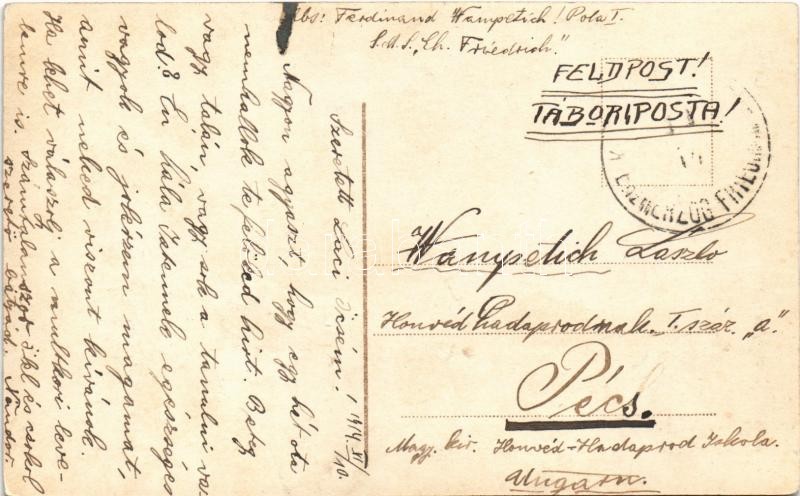 Abs: Ferdinand Wampetich! Pola I.
S.M.S. „Eh. Friedrich."
FELDPOST!
TÁBORIPOSTA!
ERZHERZOG FRIED
Wampetich László
Honvéd hadapródnak. I. szász. „a."
Pécs.
Magy. kir. Honvéd-Hadapród Iskola.
Ungarn.
1914. XI/10.
Szeretett Laci öcsém!
Nagyon agyaszt, hogy egy hét óta
nemhallok te felőled hirt. Beteg
vagy talán, vagy sok a tanulni va-
lód? Én hála Istennek egészséges
vagyok és jólérzem magamat,
amit neked viszont kívánok.
Ha lehet válaszolj a multkori leve-
lemre is. Számtalanszor ölel és csókol
szerető bátyád, Nándor